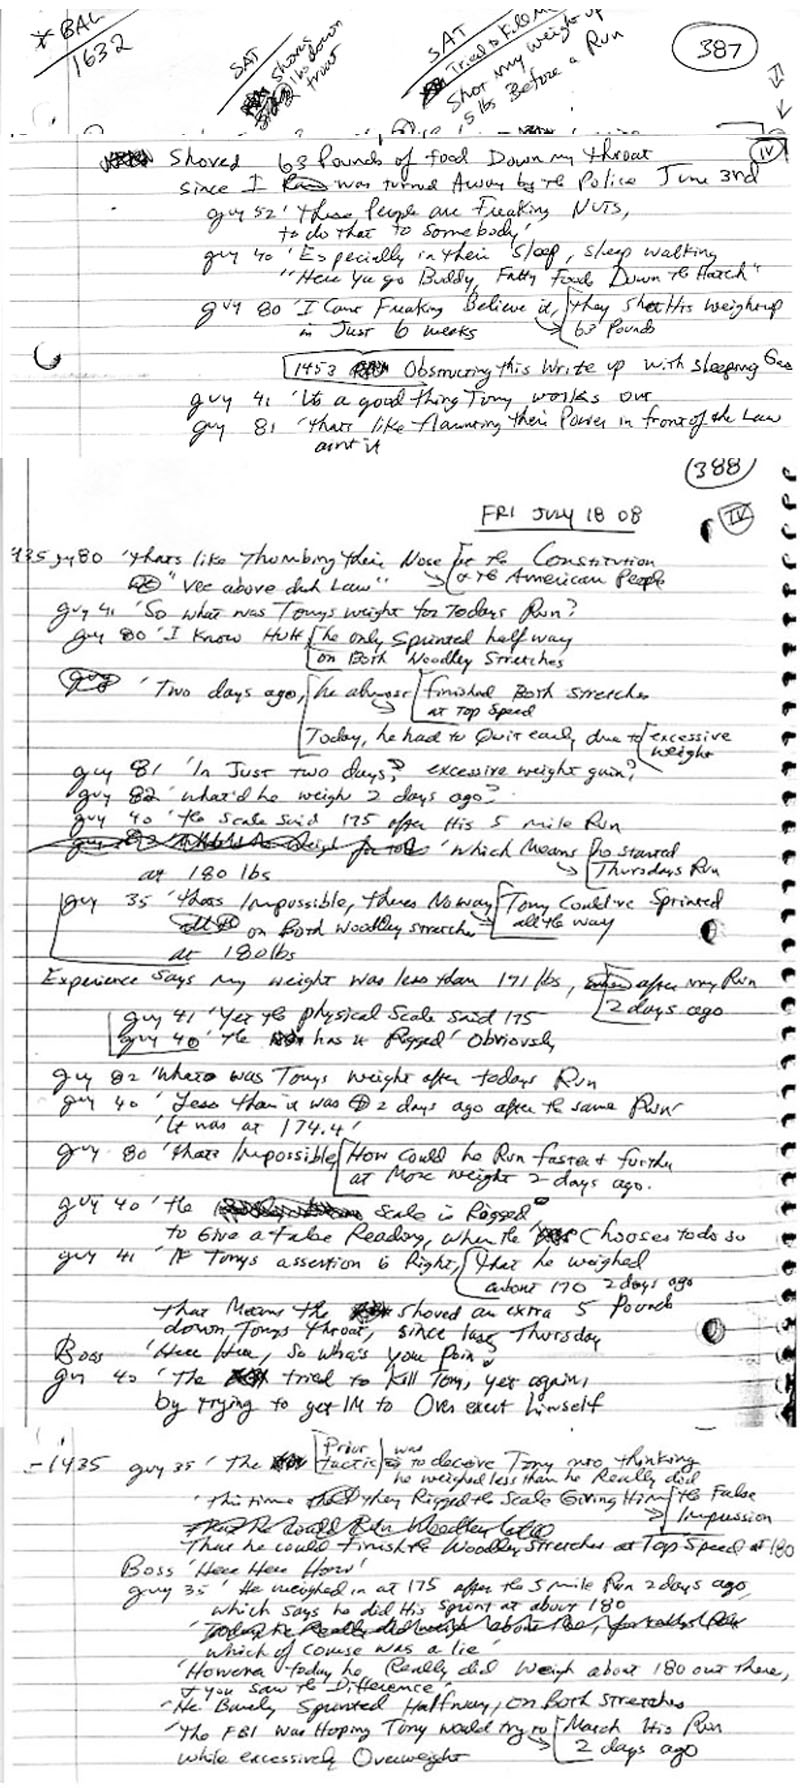 * BAL
1632
SAT
Shove
lbs down
throat
SAT
Tried to Kill Me
Shot my weight up
5 lbs Before a Run
387
IV
Shoved 63 Pounds of food Down my throat
since I was turned Away by the Police June 3rd
guy 52 'These People are Freaking NUTS,
to do that to Somebody'
guy 40 'Especially in their Sleep, sleep walking
"Here Ya go Buddy, Fatty foods Down the Hatch"
guy 80 'I Cant Freaking Believe it, they Shot His weight up
in Just 6 weeks 63 Pounds
1453 Obstructing this Write up with sleeping Gas
guy 41 'Its a good thing Tony works out
guy 81 'thats like flaunting their Power in front of the Law
aint it
388
FRI JULY 18 08
IV
435 guy 80 'thats like Thumbing their Nose at the Constitution
"Vee above duh Law" & the American People
guy 41 'So what was Tonys weight for Todays Run?
guy 80 'I Know Huh he only Sprinted half way
on Both Woodley Stretches
'Two days ago, he almost finished Both Stretches
at Top Speed
Today, he had to Quit early due to excessive
weight
guy 81 'In Just two days? excessive weight gain?
guy 82 'what'd he weigh 2 days ago?
guy 40 'the Scale Said 175 after His 5 mile Run
'which Means he started
at 180 lbs Thursdays Run
guy 35 'thats Impossible, theres No way Tony Could've Sprinted
on Both Woodley stretches all the way
at 180 lbs
Experience says my weight was less than 171 lbs, after my Run
2 days ago
guy 41 'Yet the physical Scale said 175
guy 40 'the has it Rigged' Obviously
guy 82 'What was Tonys weight after todays Run
guy 40 'Less than it was 2 days ago after the same Run'
'It was at 174.4'
guy 80 'thats Impossible How could he Run faster & further
at More weight 2 days ago.
guy 40 'the Scale is Rigged
to Give a False Reading, when the Chooses to do so
guy 41 'If Tonys assertion is Right, that he weighed
about 170 2 days ago
that Means the shoved an extra 5 Pounds
down Tonys throat, since last Thursday
Boss 'Here Here, so whats your Point
guy 40 'The tried to Kill Tony, yet again,
by trying to get IM to Over exert himself
-1435 guy 35 'The Prior tactic was to deceive Tony into thinking
he weighed less than he Really did
'This time they Rigged the Scale Giving Him the False
Impression
That he could finish the Woodley Stretches at Top Speed at 180
Boss 'Here Here How'
guy 35 'He weighed in at 175 after the 5 mile Run 2 days ago,
which says he did His Sprint at about 180
which of course was a lie'
'However today he Really did weigh about 180 out there,
& you saw the Difference'
'He Barely Sprinted Halfway, on Both stretches
'The FBI was Hoping Tony would try to Match His Run
while excessively Overweight 2 days ago